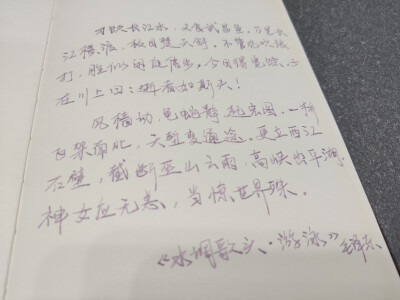 才饮长江水,又食武昌鱼。万里长
江横渡,极目楚天舒。不管风吹浪
打,胜似闲庭信步,今日得宽余。子
在川上曰:逝者如斯夫!
风樯动,龟蛇静,起宏图。一桥
飞架南北,天堑变通途。更立西江
石壁,截断巫山云雨,高峡出平湖。
神女应无恙,当惊世界殊。
《水调歌头·游泳》毛泽东